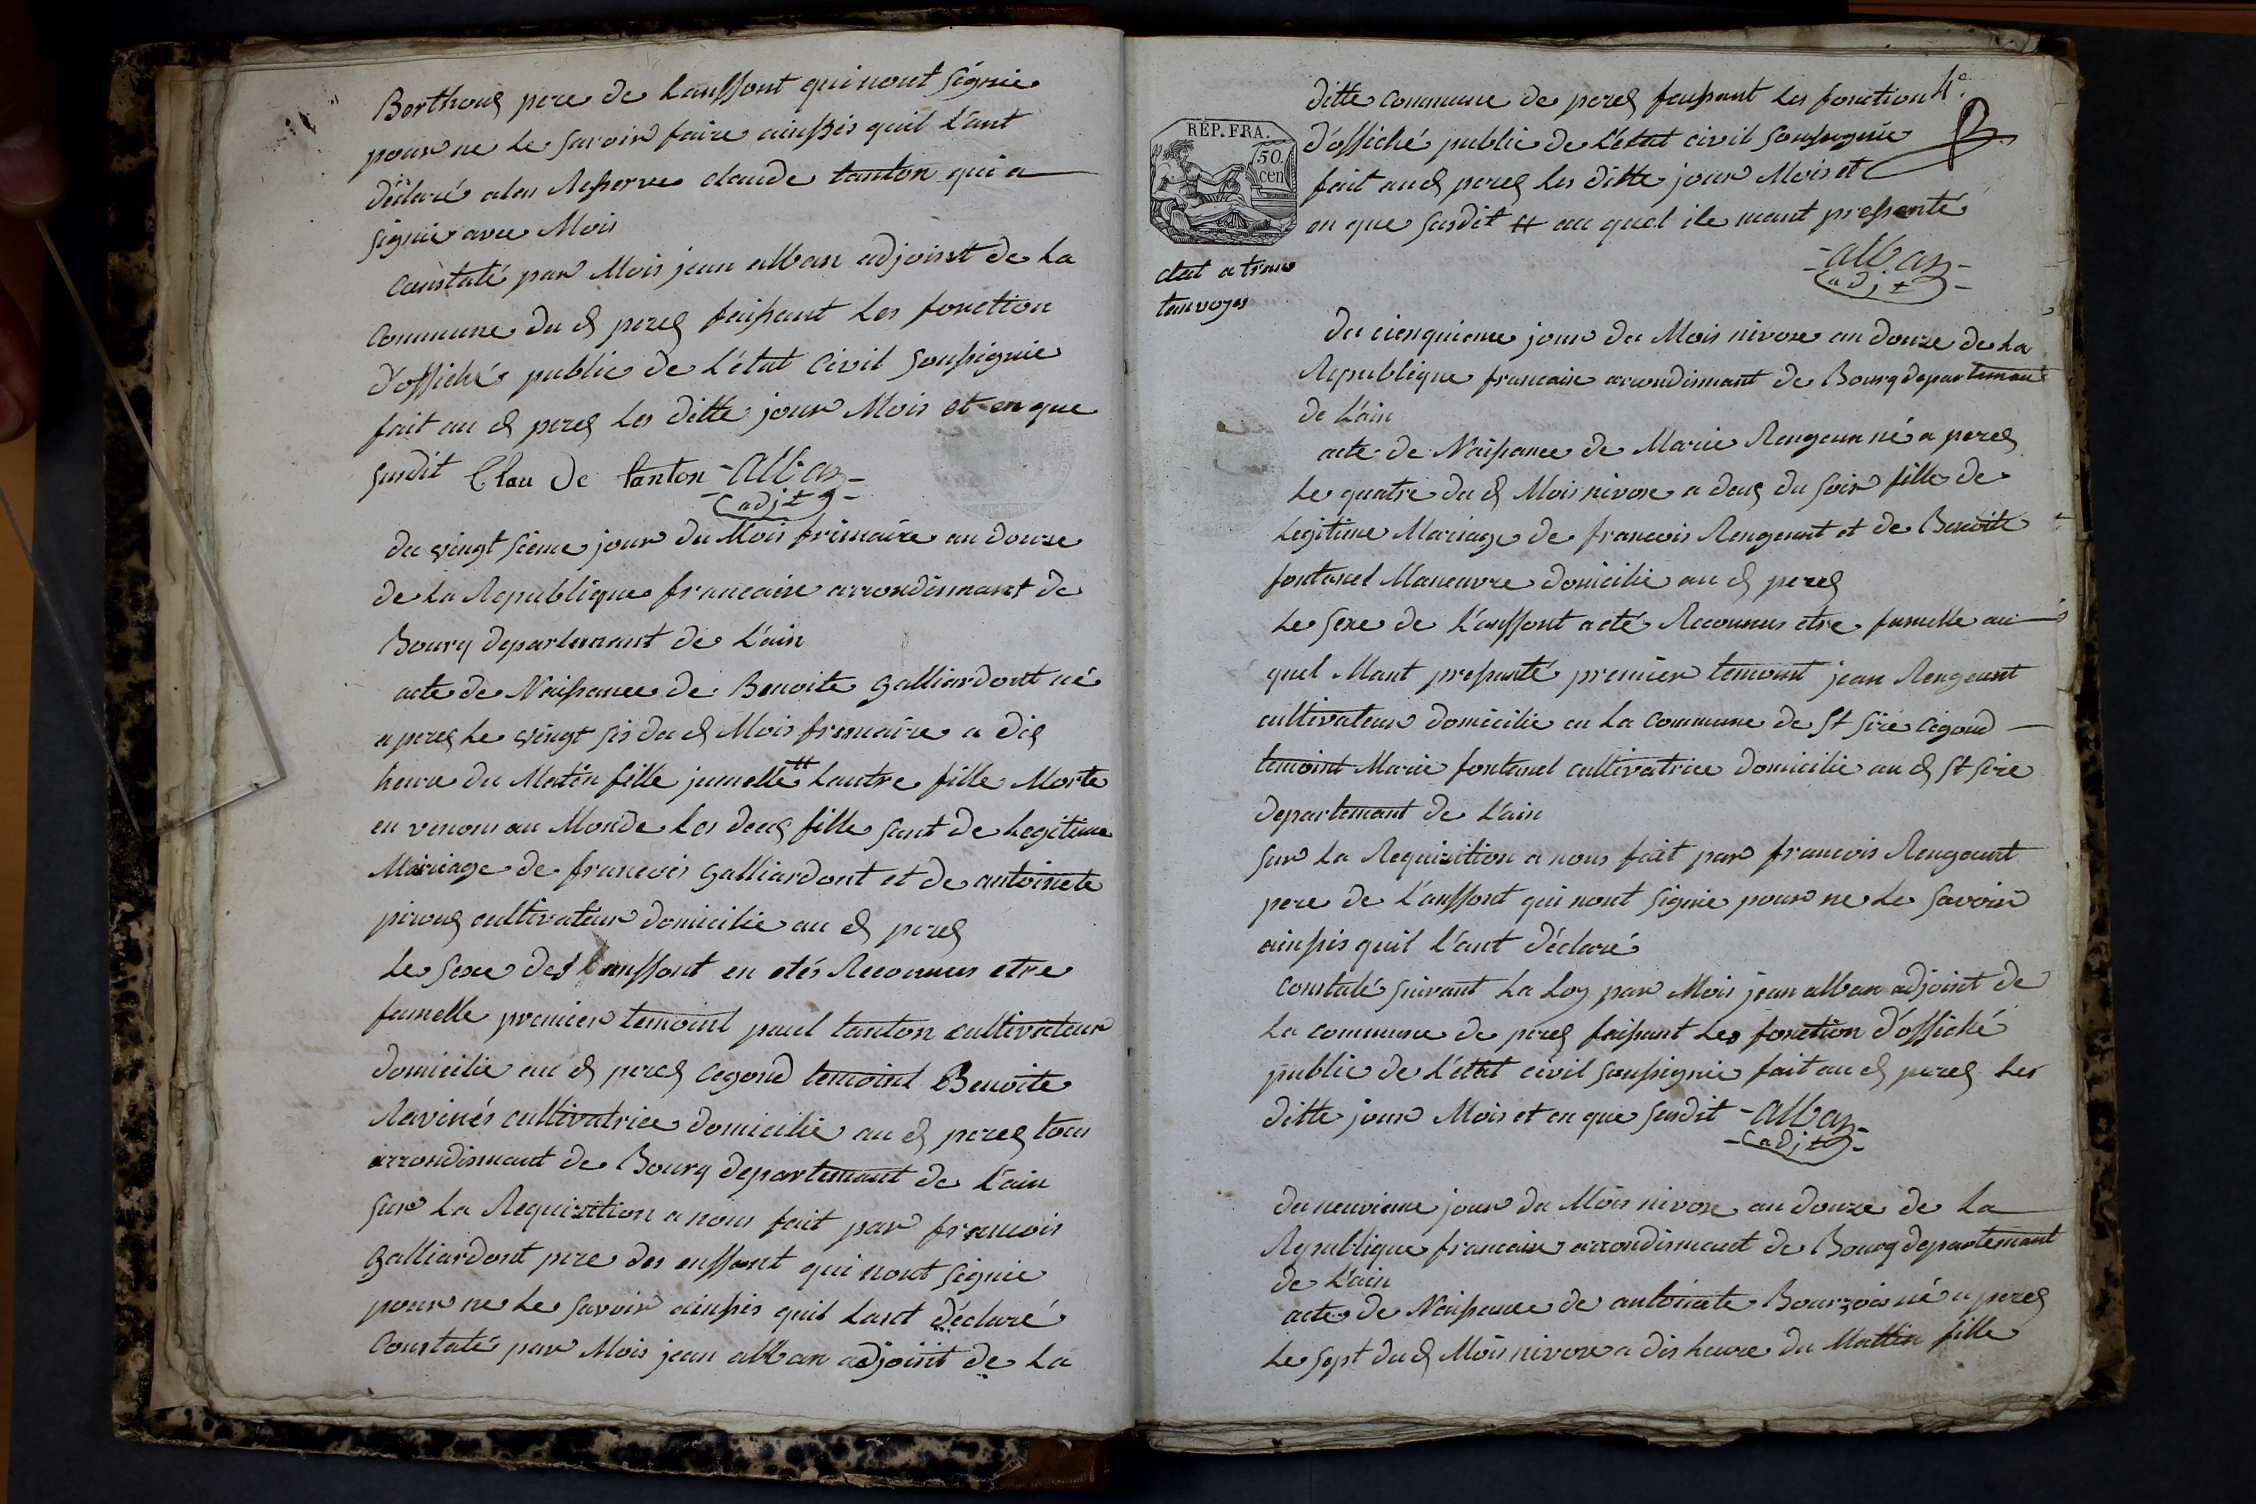 Berthoud pere de Lanffont qui nout Signie
pour ne le savoir faire ainssis quil l'ant
Déclaré alon Resserve claude tanton qui a
signie avec Mois
Constaté par Mois jean alban adjoint de La
Commune du d perez faissant Les fonction
d'offiché public de L'état Civil soussignie
fait au d perez Les ditte jour Mois et en que
susdit Clau de tanton - alban -
adjt
du vingt sieme jour du Mois frimaire an douze
de La Republique francaise arrondismant de
Bourg departemant de L'ain
acte de Naissance de Benoite galliardont né
a perez Le vingt sis du d Mois frimaire a dis
heure du Matin fille jumelle # Lautre fille Morte
en venons au Monde Les deus fille sont de Legitime
Mariage de francois galliardont et de antoinete
pirous cultivateur domicilie au d perez
Le sexe des Lanffont en etés Reconnus etre
famelle premier temoint paul tanton cultivateur
domicilie au d perez cegond temoint Benoite
Ravinés cultivatrice domicilie au d perez tous
arrondismant de Bourg departemant de L'ain
sur La Requizition a nous fait par francois
Galliardont pere des enffont qui nout signie
pour ne Le savoir ainssis quil Lant déclaré
Constaté par Mois jean alban adjoint de La
ditte commune de perez faissant les fonction 4e.
d'offiché public de L'état civil soussignie
fait au d perez les ditte jour Mois et
en que susdit # au quel ile mant pressenté
- alban -
adjt
REP. FRA.
50
cen
du cienquieme jour du Mois nivose an douze de La
Republique francaise arrondismant de Bourg departemant
de L'ain
acte de Naissance de Marie Rengeun né a perez
Le quatre du d Mois nivose a deus du soir fille de
Legitime Mariage de francois Rengeunt et de Benoite
fontanel Maneuvre domicilie au d perez
Le sexe de L'anffont a eté Reconnus etre famelle au
quel Mant pressanté premier temoint jean Rengeunt
cultivateur domicilie en La commune de St sire cegond
temoint Marie fontanel cultivatrice domicilie au d St sire
departemant de L'ain
sur La Requizition a nous fait par francois Rengeunt
pere de L'anffont qui nout signie pour ne Le savoir
ainssis quil l'ant déclaré
Constaté suivant La Loy par Mois jean alban adjoint de
La commune de perez faissant Les fonction d'offiché
public de L'état civil soussignie fait au d perez Les
ditte jour Mois et en que susdit - alban -
adjt
du neuvieme jour du Mois nivose an douze de La
Republique francaise arrondismant de Bourg departemant
de L'ain
acte de Naissance de antoinete Bourgois né a perez
Le sept du d Mois nivose a dis heure du Mattin fille